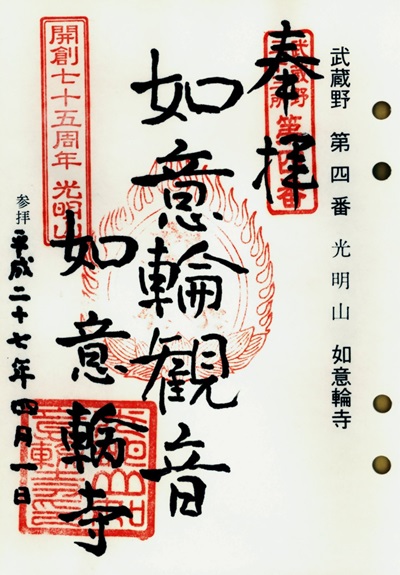 武蔵野 第四番 光明山 如意輪寺
奉拝
如意輪観音
開創七十五周年 光明山
如意輪寺
参拝
平成二十七年四月一日